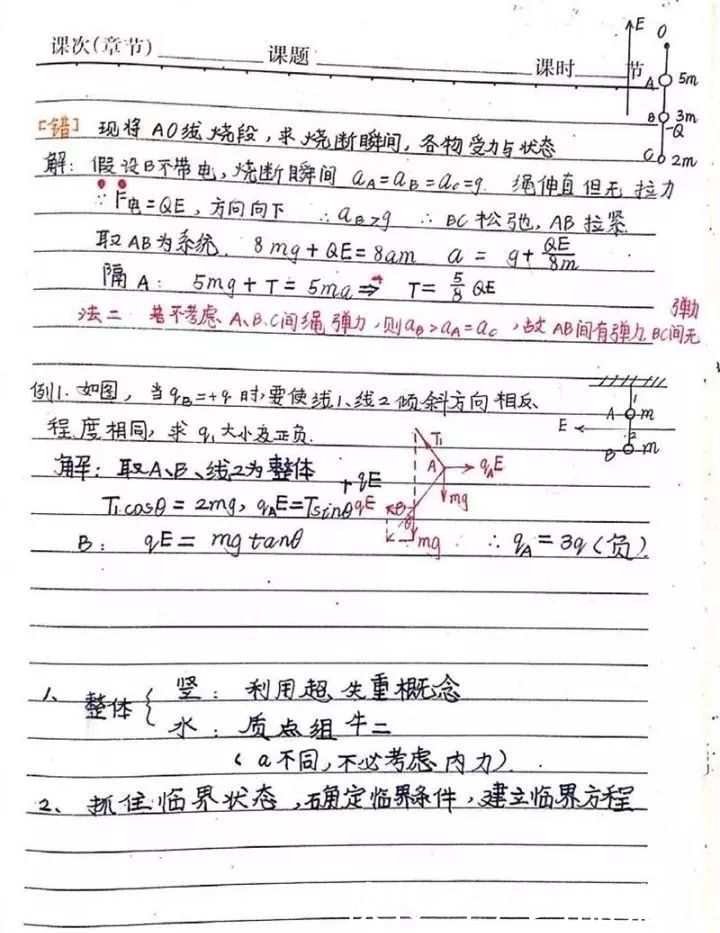 课次(章节) 课题 课时 节
E O
A 5m
B 3m
-Q
C 2m
[错] 现将AO线烧段,求烧断瞬间,各物受力与状态
解: 假设B不带电,烧断瞬间 aA=aB=ac=g. 绳伸直但无拉力
∵ F电=QE,方向向下 ∴aB>g ∴BC松弛,AB拉紧
取AB为系统. 8mg+QE=8am a = g+QE/8m
隔A: 5mg+T=5ma⇒ T=5/8 QE
法二 若不考虑A、B、C间绳弹力,则aB>aA=ac,故AB间有弹力,BC间无弹力
例1. 如图,当qB=+q时,要使线1、线2倾斜方向相反
程度相同,求q,大小及正负.
A m
1
E
2
B m
解:取A、B、线2为整体
T1cosθ=2mg, qAE=Tsinθ+qE
B: qE= mgtanθ
∴qA=3q(负)
T1
A qAE
mg
B qE
θ
mg
1、 整体 { 竖:利用超失重概念
水:质点组牛二
(a不同,不必考虑内力)
2、抓住临界状态,确定临界条件,建立临界方程